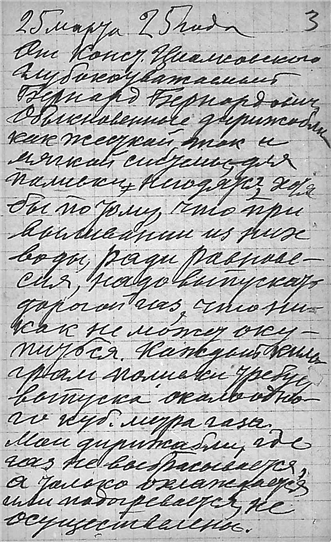 25 марта 25 года 3
От Конст. Циолковского
Глубокоуважаемый
Бернард Бернардович,
Обыкновенные дирижабли
как жесткой так и
мягкой системы, для
поливки, негодны, хотя
бы потому, что при
выливании из них
воды, ради равнове-
сия, надо выпускать
дорогой газ, что ни-
как не может оку-
питься. Каждый кило
грам поливки требует
выпуска около одно-
го куб. метра газа.
Мои дирижабли, где
газ не выбрасывается,
а только охлаждается
или подогревается, не
осуществлены.